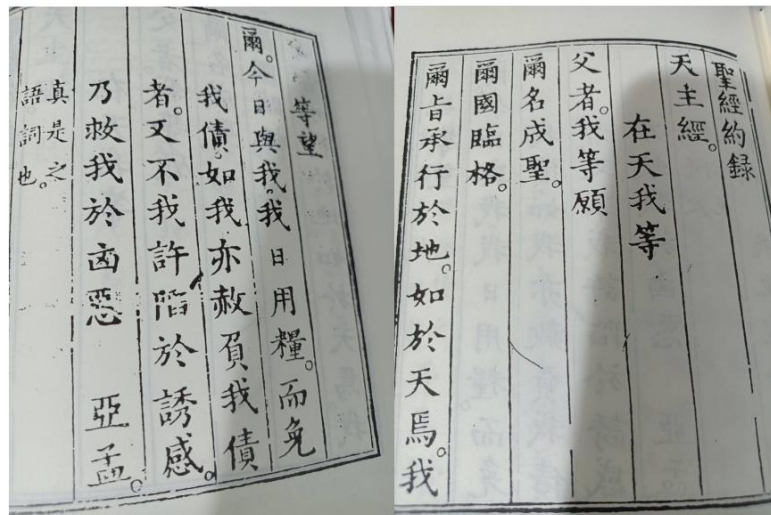 聖經約録
天主經。
在天我等
父者。我等願
爾名成聖。
爾國臨格。
爾旨承行於地。如於天焉。我
等望
爾。今日與我。我日用糧。而免
我債。如我亦赦負我債
者。又不我許陷於誘感。
乃救我於凶惡　亞孟。
真是之
語詞也。